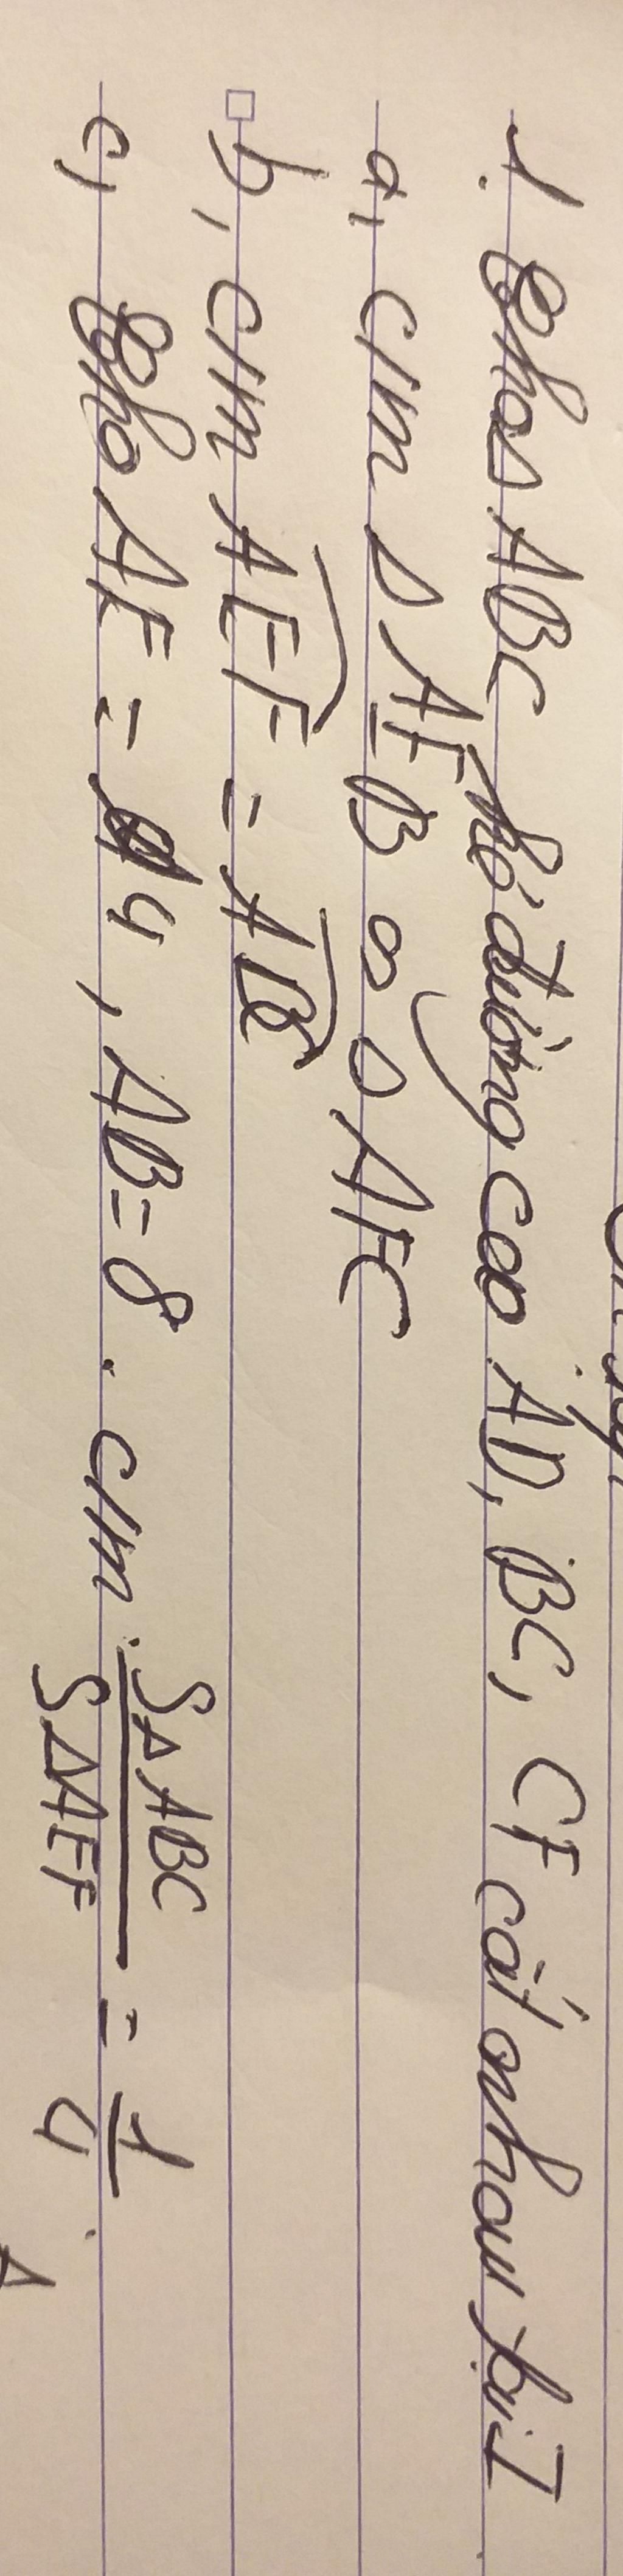 1. Cho Δ ABC kẻ đường cao AD, BC, CF cắt nhau tại I
a, c/m Δ AEB ∽ Δ AFC
b, c/m AEF = ABC
c, Cho AE = 4, AB = 8. c/m SΔABC/SΔAEF = 1/4.